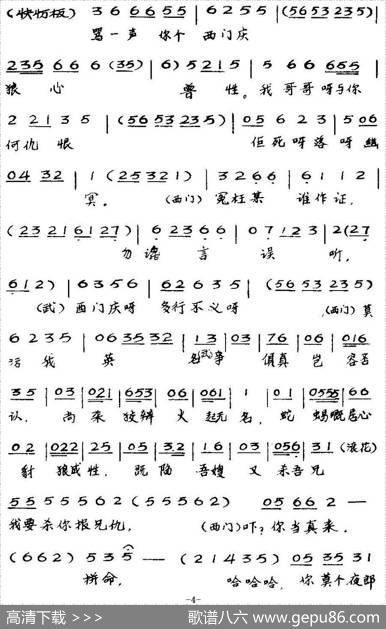 (快叻板) 3 6 6 6 5 5 | 6 2 5 5 | (5 6 5 3 2 3 5) |
骂一声 你个 西门庆
2 3 5 6 6 6 (3 5) | 6) 5 2 1 5 | 5 6 6 6 5 5 |
狼心 兽性。我哥哥呀与你
2 2 1 3 5 | (5 6 5 3 2 3 5) | 0 5 6 2 3 | 5 0 6
何仇恨 佢死呀落呀幽
0 4 3 2 | 1 (2 5 3 2 1) | 3 2 6 6 | 6 1 1 2 |
冥。 (西门) 冤枉某 谁作证,
(2 3 2 1 6 1 2 7) | 6 2 3 6 6 | 0 7 1 2 3 | 2 (2 7
勿谗言 误 听,
6 1 2) | 6 3 5 6 | 6 2 6 3 5 | (5 6 5 3 2 3 5) |
(武) 西门庆呀 多行不义呀 (西门) 莫
6 2 3 5 | 0 6 3 5 3 2 | 1 3 | 0 3 | 7 6 | 0 6 | 0 1 6
污我 英 名 武 事 俱真 岂 容否
3 5 | 0 3 | 0 2 1 | 6 5 3 | 0 6 | 0 6 1 | 1 | 0 1 | 0 5 5 5 | 6 6
认, 尚 狡辩 火起无名, 蛇 蝎 居心
0 2 | 0 2 2 | 2 5 | 0 5 | 3 2 | 1 6 | 0 3 | 0 5 6 | 3 1 (浪花)
豺 狼成性, 既陷 吾嫂 又杀吾兄
5 5 5 5 5 6 2 (5 5 5 6 2) 0 5 6 6 2 —
我要杀你报兄仇, (西门) 吓? 你当真来.
(6 6 2) 5 3 5 — (2 1 4 3 5) 0 5 3 5 3 1
拼命, 哈哈哈, 你莫个夜郎
-4-
高清下载 >>> 歌谱八六 www.gepu86.com